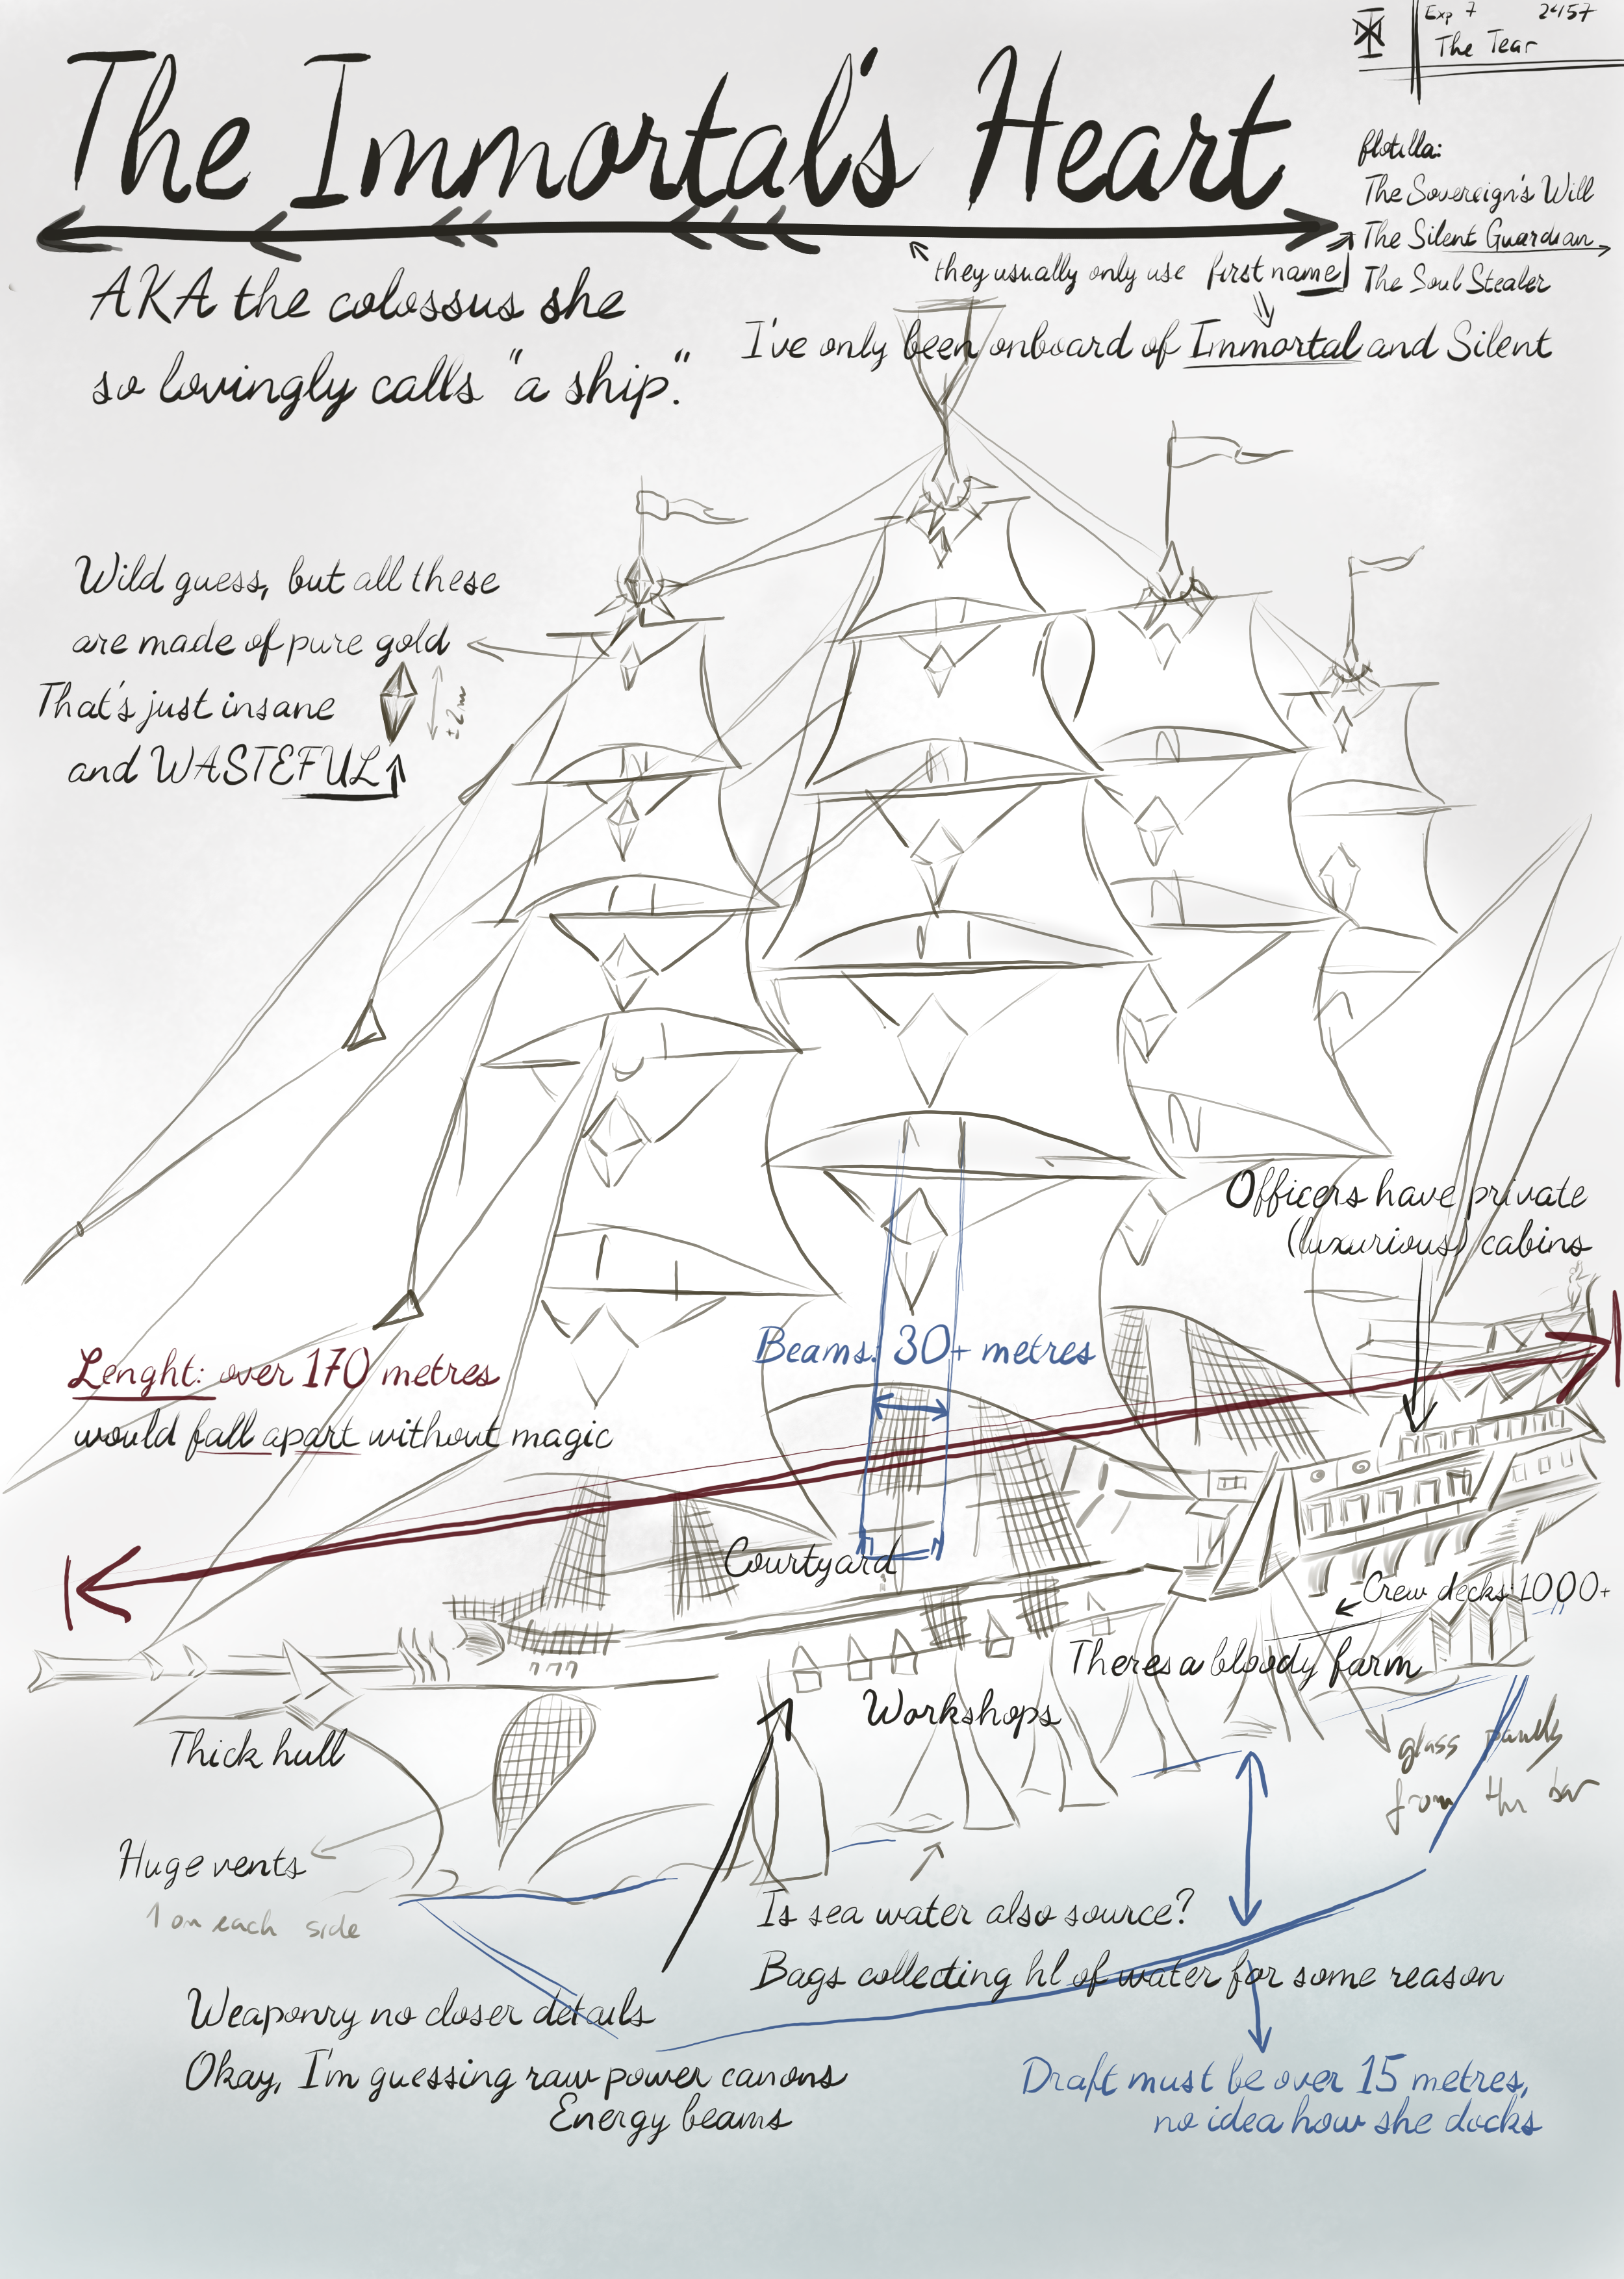 Exp 7 2457
The Tear
The Immortal's Heart
flotilla:
The Sovereign's Will
The Silent Guardian
The Soul Stealer
they usually only use first name
AKA the colossus she
so lovingly calls "a ship".
I've only been onboard of Immortal and Silent
Wild guess, but all these
are made of pure gold
That's just insane
and WASTEFUL
±2m
Officers have private
(luxurious) cabins
Beams: 30+ metres
Lenght: over 170 metres
would fall apart without magic
Courtyard
Crew decks: 1000+
Theres a bloody farm
Workshops
Thick hull
glass panels
from the bar
Huge vents
1 on each side
Is sea water also source?
Bags collecting hl of water for some reason
Weaponry no closer details
Okay, I'm guessing raw power canons
Energy beams
Draft must be over 15 metres,
no idea how she docks